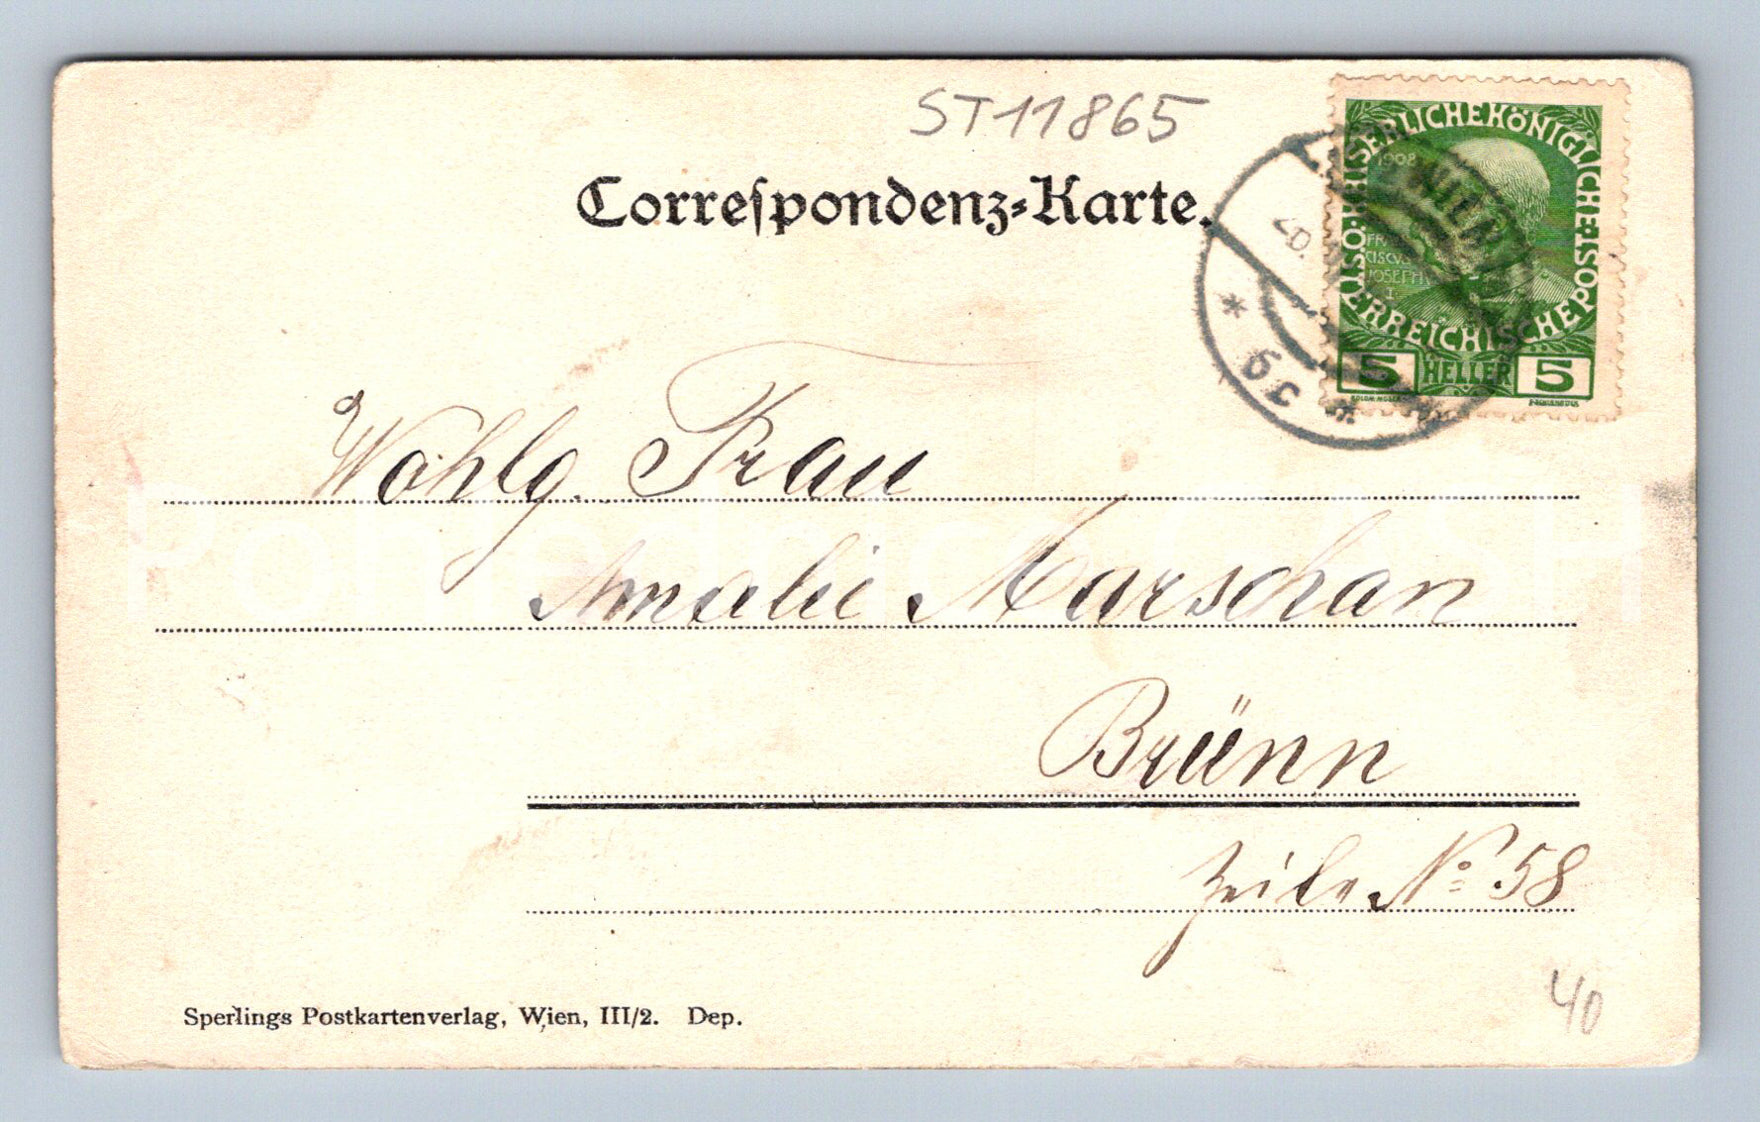 ST11865
Correſpondenz-Karte.
KAISERLICHE KÖNIGLICHE ÖSTERREICHISCHE POST
1908
FRAN
CISCVS
JOSEPH
I
5 HELLER 5
WIEN
20.
* 6c *
Wohlg. Frau
Amalie Marschan
Brünn
Zeile No 58
40
Sperlings Postkartenverlag, Wien, III/2. Dep.